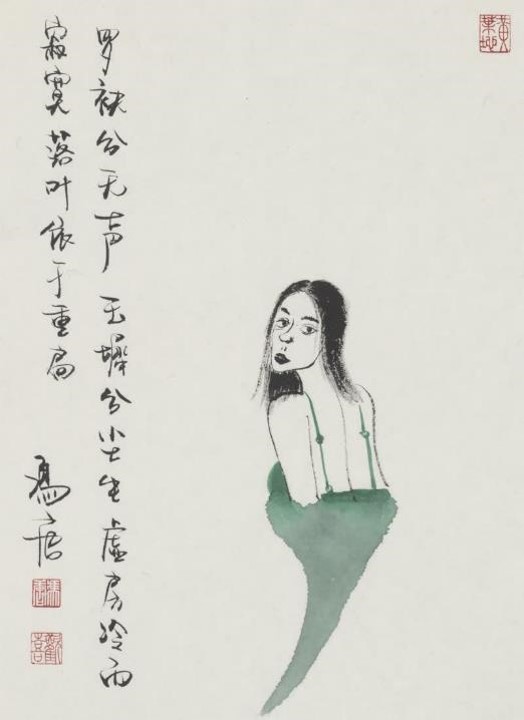 罗袂兮无声 玉墀兮尘生 虚房冷而
寂寞落叶依于重扃
馮唐